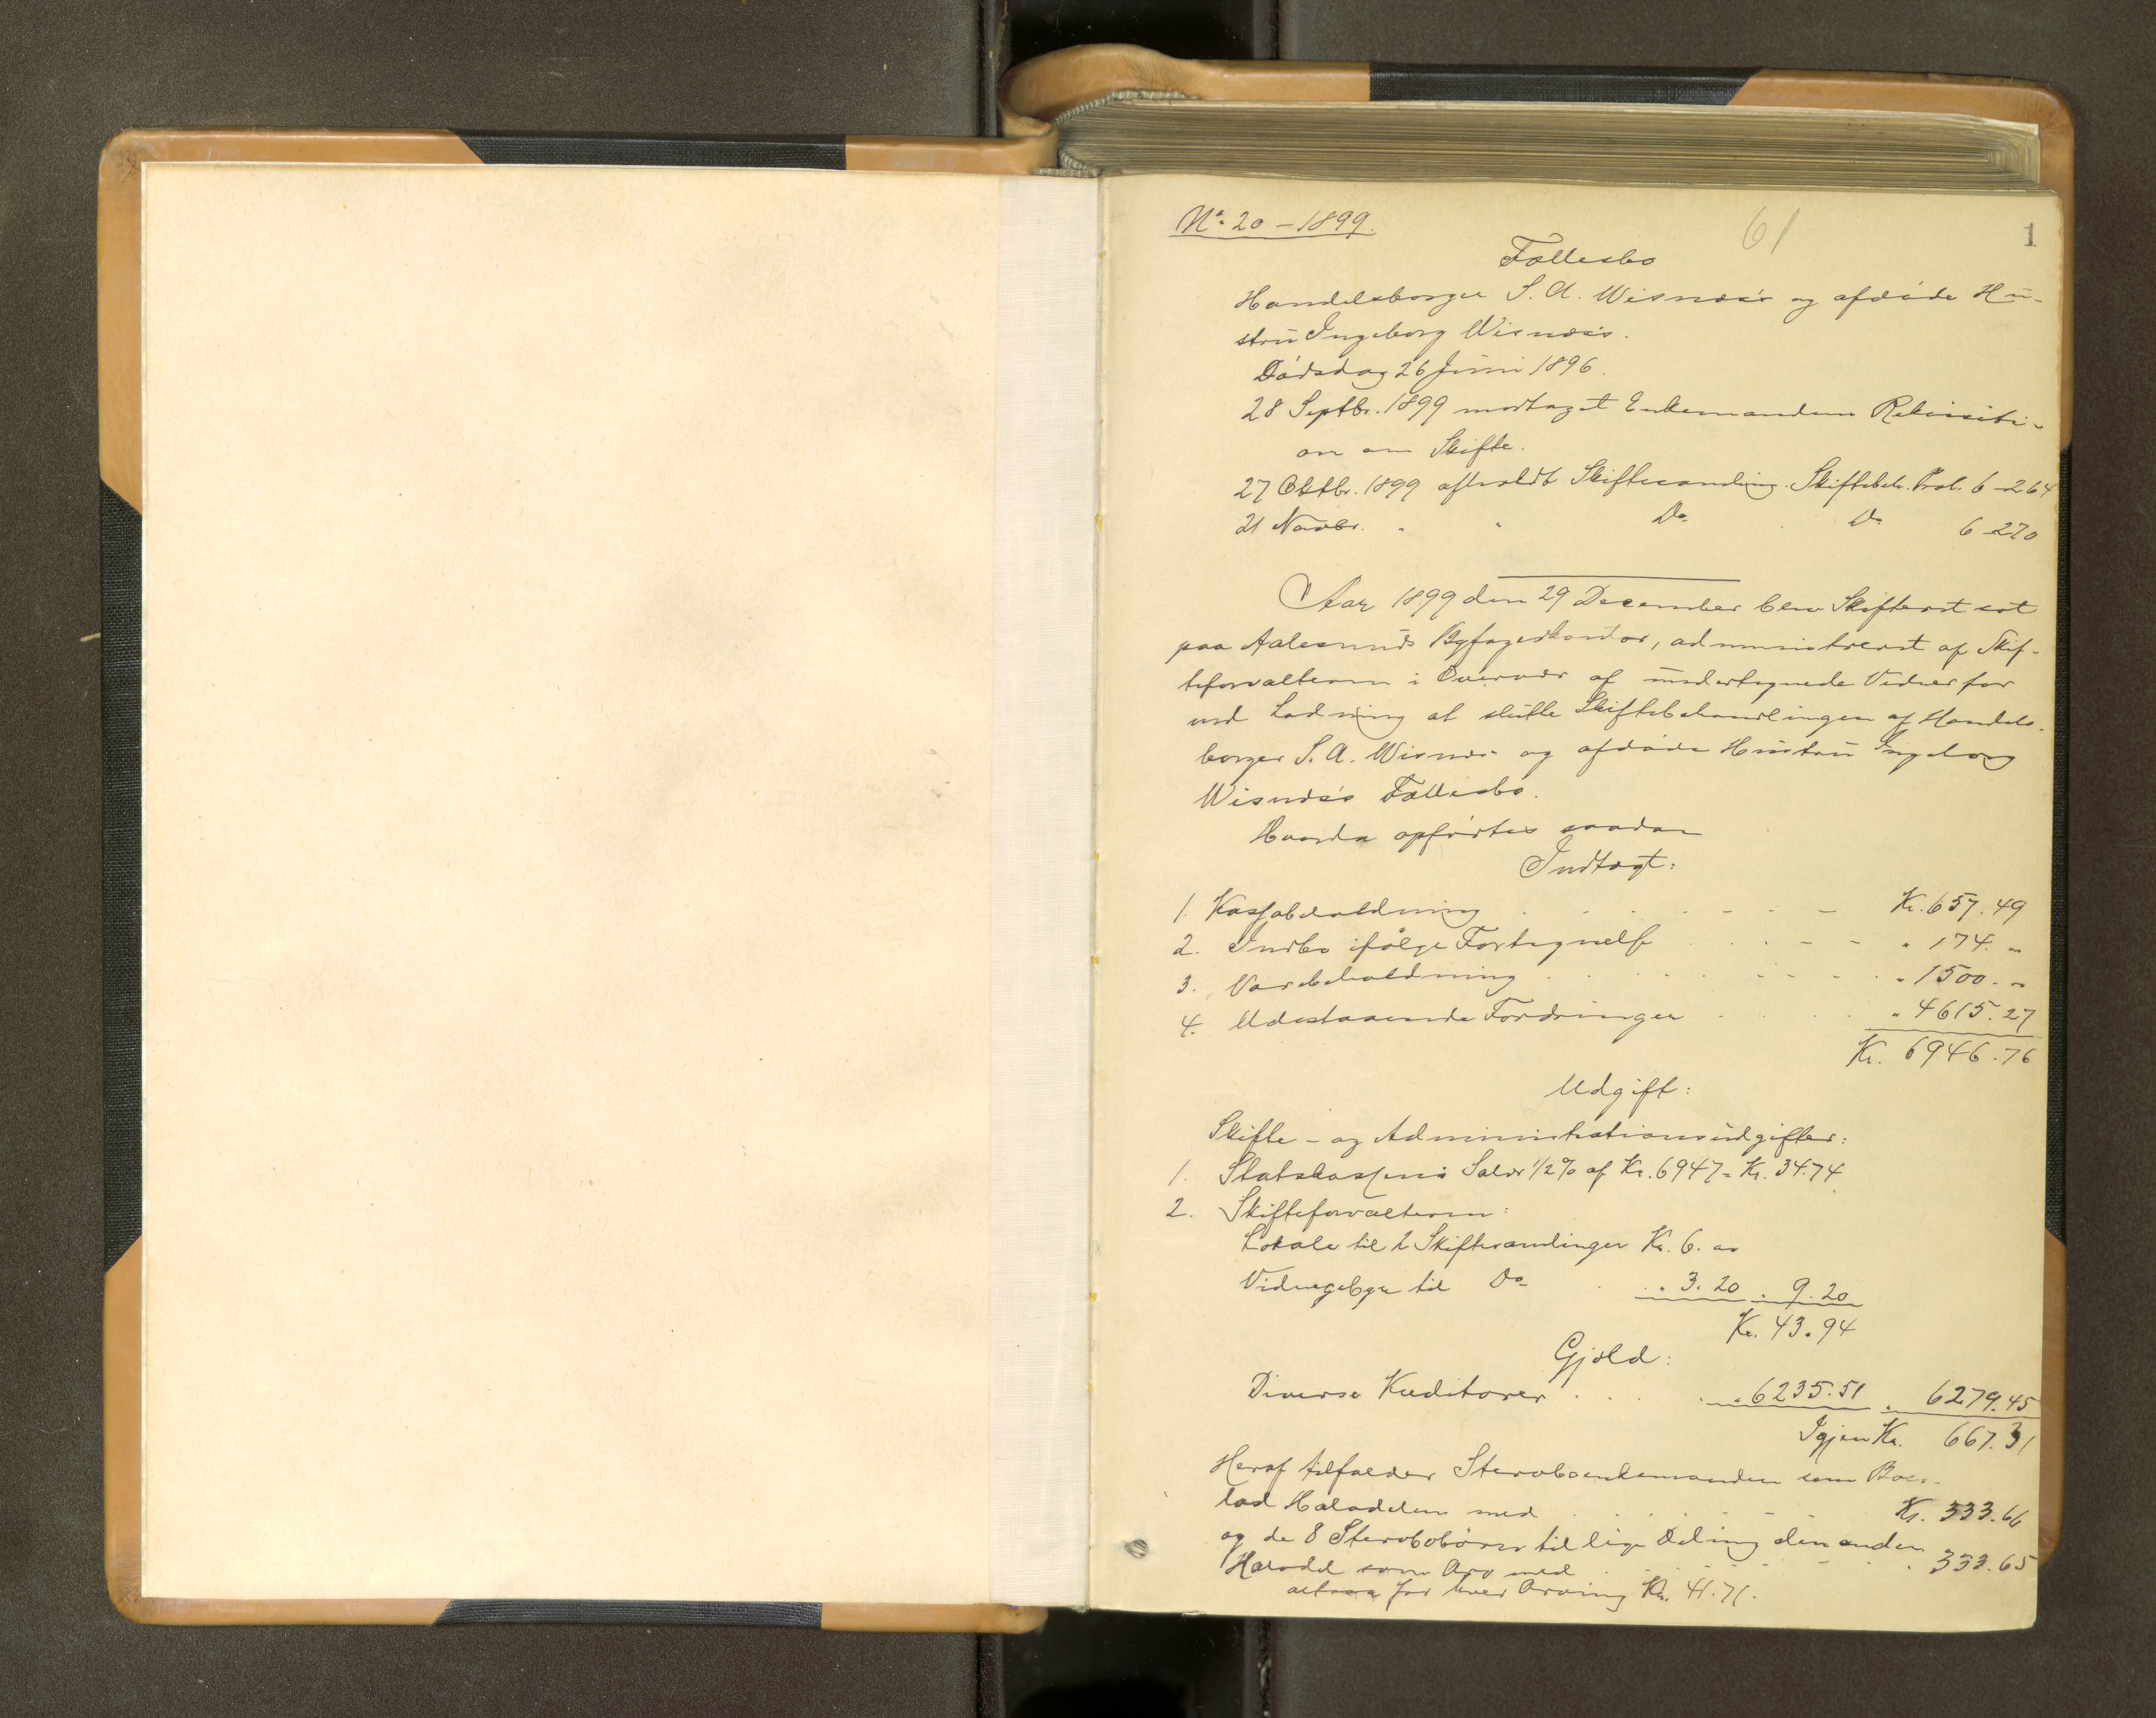 No. 20 - 1899.
61
1
Fællesbo
Handelsborger S. A. Wisnæs's og afdøde Hu-
stru Ingeborg Wisnæs's.
Dødsdag 26 Juni 1896.
28 Septbr. 1899 modtaget Enkemandens Rekvisiti-
on om Skifte.
27 Oktbr. 1899 afholdt Skiftesamling. Skiftebeh. Prot. 6 - 264
21 Novbr. " " Do. Do. 6 - 270
Aar 1899 den 29 December blev Skifteret sat
paa Aalesunds Byfogedkontor, administreret af Skif-
teforvalteren i Overvær af undertegnede Vidner for
ved Lodning at slutte Skiftebehandlingen af Handels-
borger S. A. Wisnæs og afdøde Hustru Ingeborg
Wisnæs's Fællesbo.
Hvorda opførtes saadan
Indtægt:
1. Kassabeholdning Kr. 657.49
2. Indbo ifølge Fortegnelse " 174. "
3. Varebeholdning " 1500. "
4. Udestaaende Fordringer " 4615.27
Kr. 6946.76
Udgift:
Skifte- og Administrationsudgifter:
1. Statskassens Salær 1/2 % af Kr. 6947 = Kr. 34.74
2. Skifteforvalteren:
Lokale til 2 Skiftesamlinger Kr. 6.00
Vidnegebyr til Do. " 3.20 " 9.20
Kr. 43.94
Gjæld:
Diverse Kreditorer " 6235.51 " 6279.45
Igjen Kr. 667.31
Heraf tilfalder Sterboenkemanden som Bos-
lod Halvdelen med Kr. 333.66
og de 8 Sterbobørn til lige Deling den anden
Halvdel som Arv med " 333.65
altsaa for hver Arving Kr. 41.71.